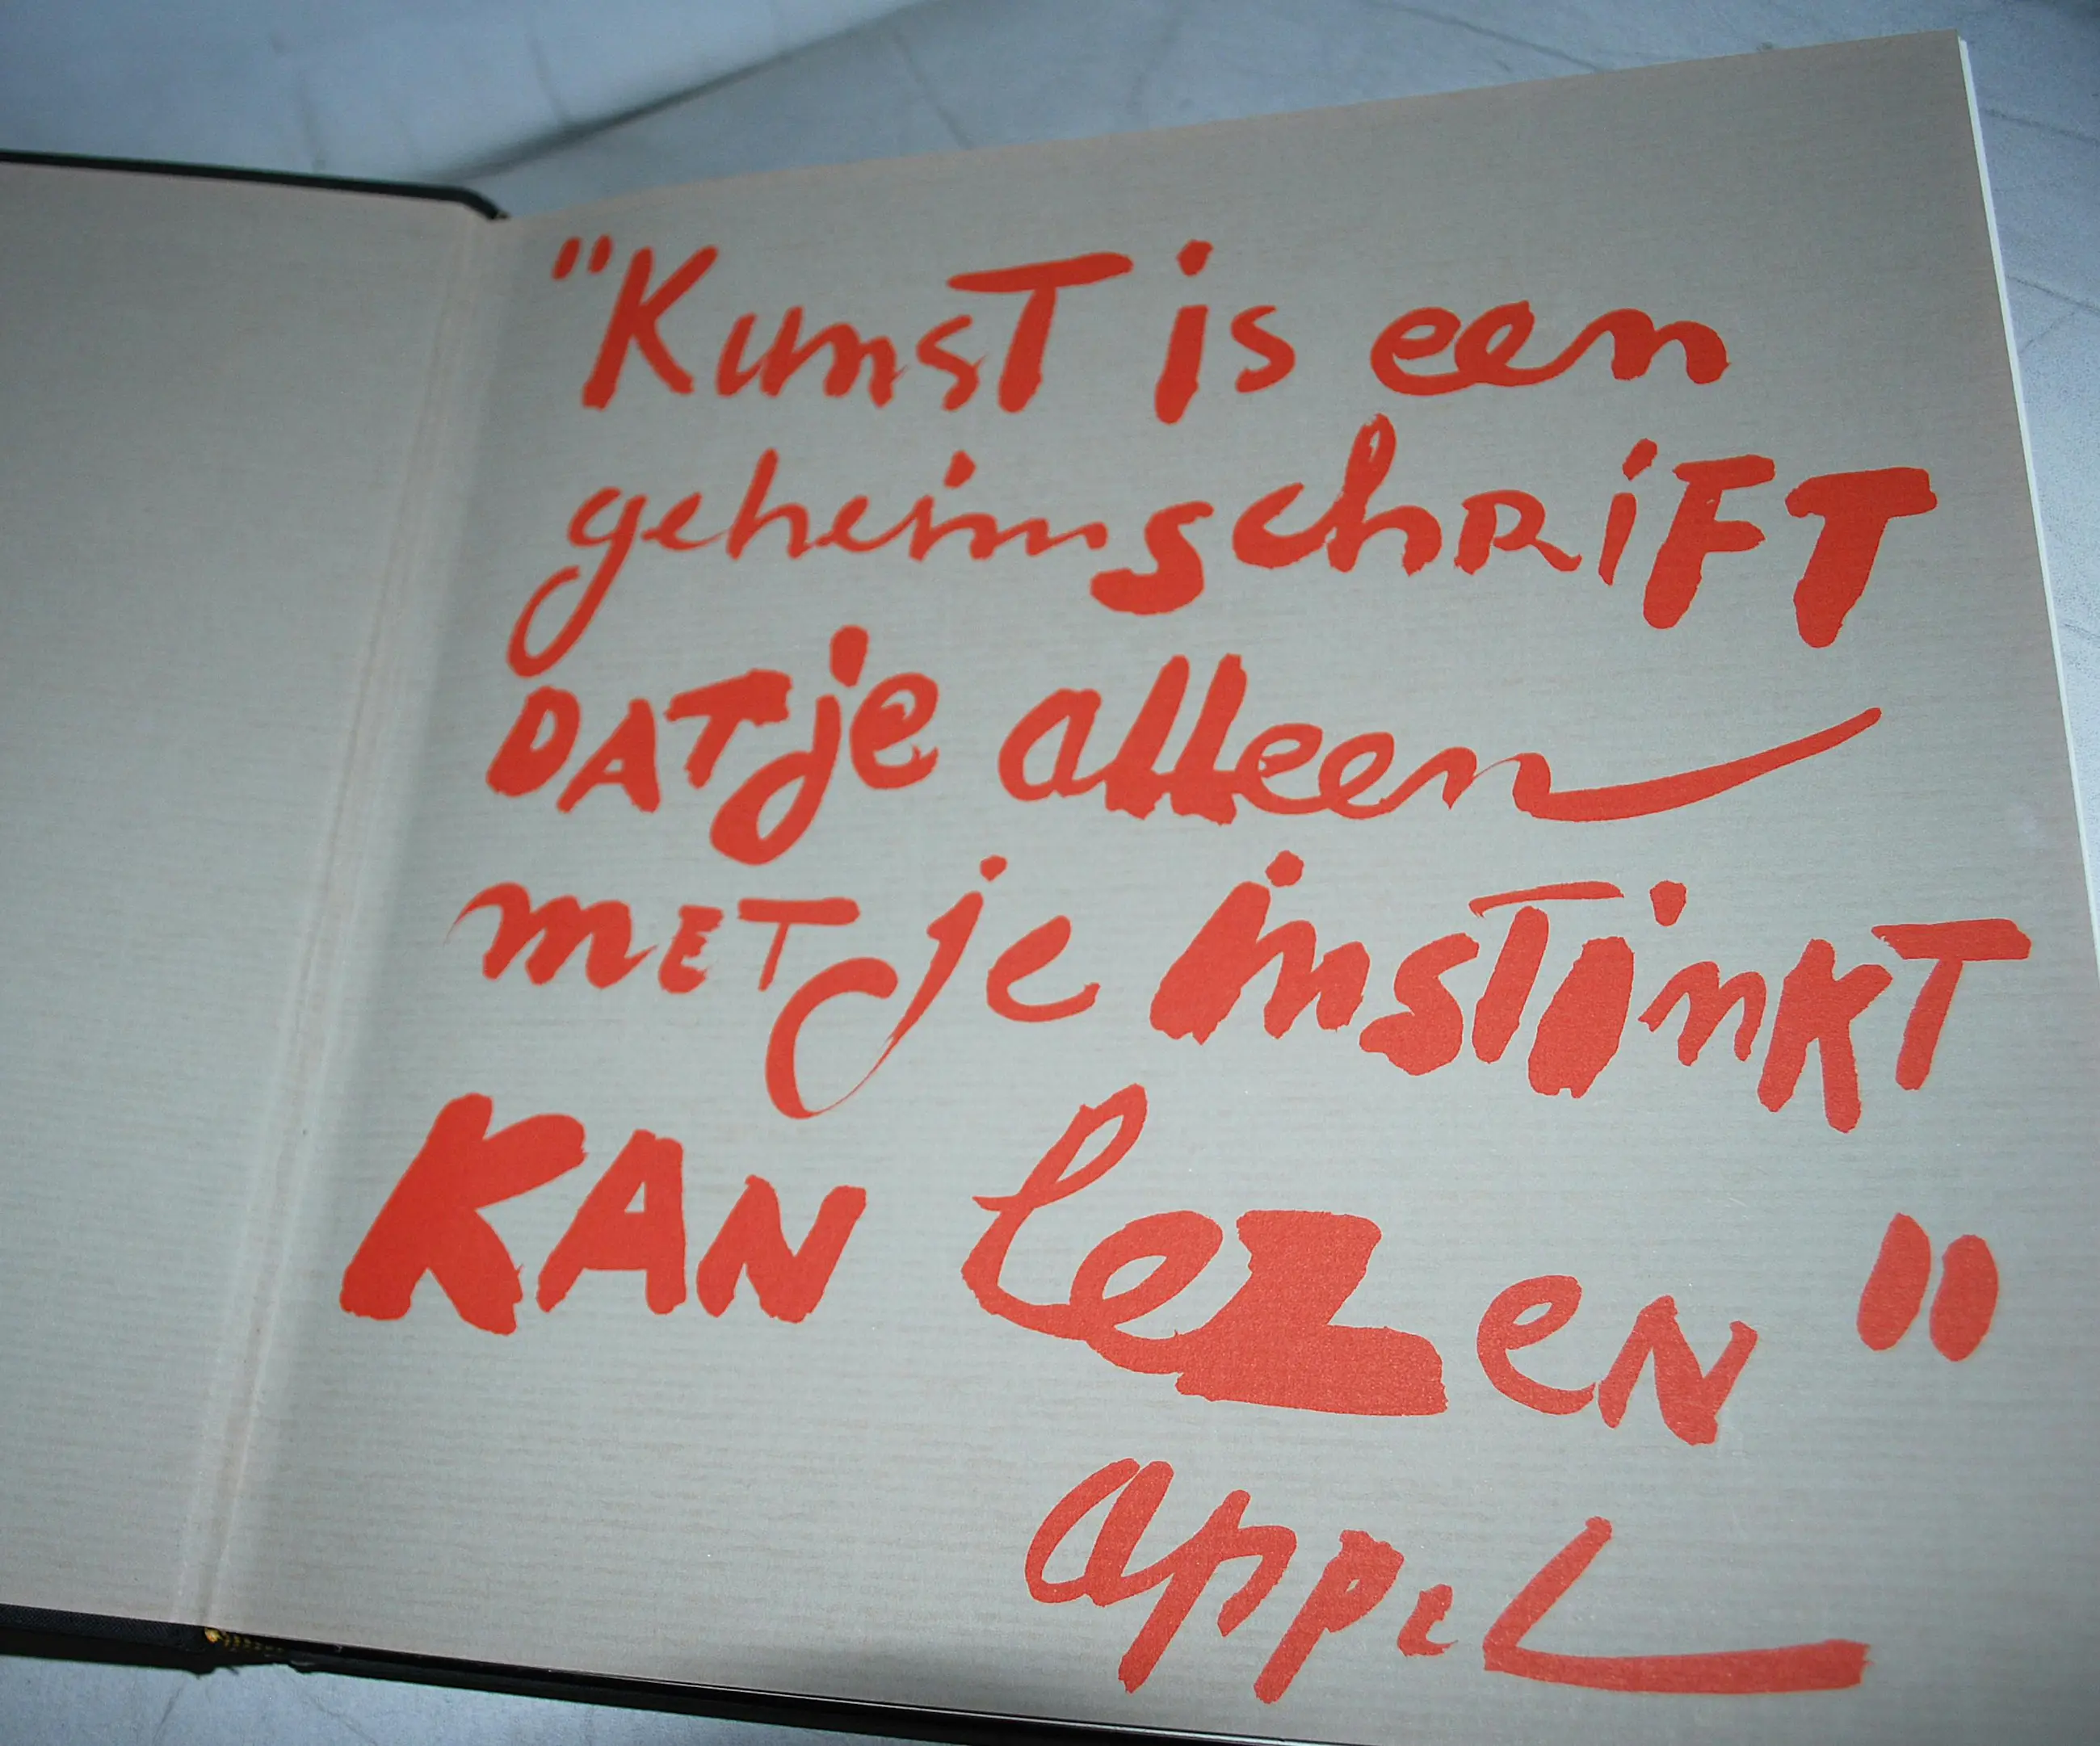 "KunsT is een
geheimschRiFT
DATje alleen
meT je insTinKT
KAN lezeN"
appel